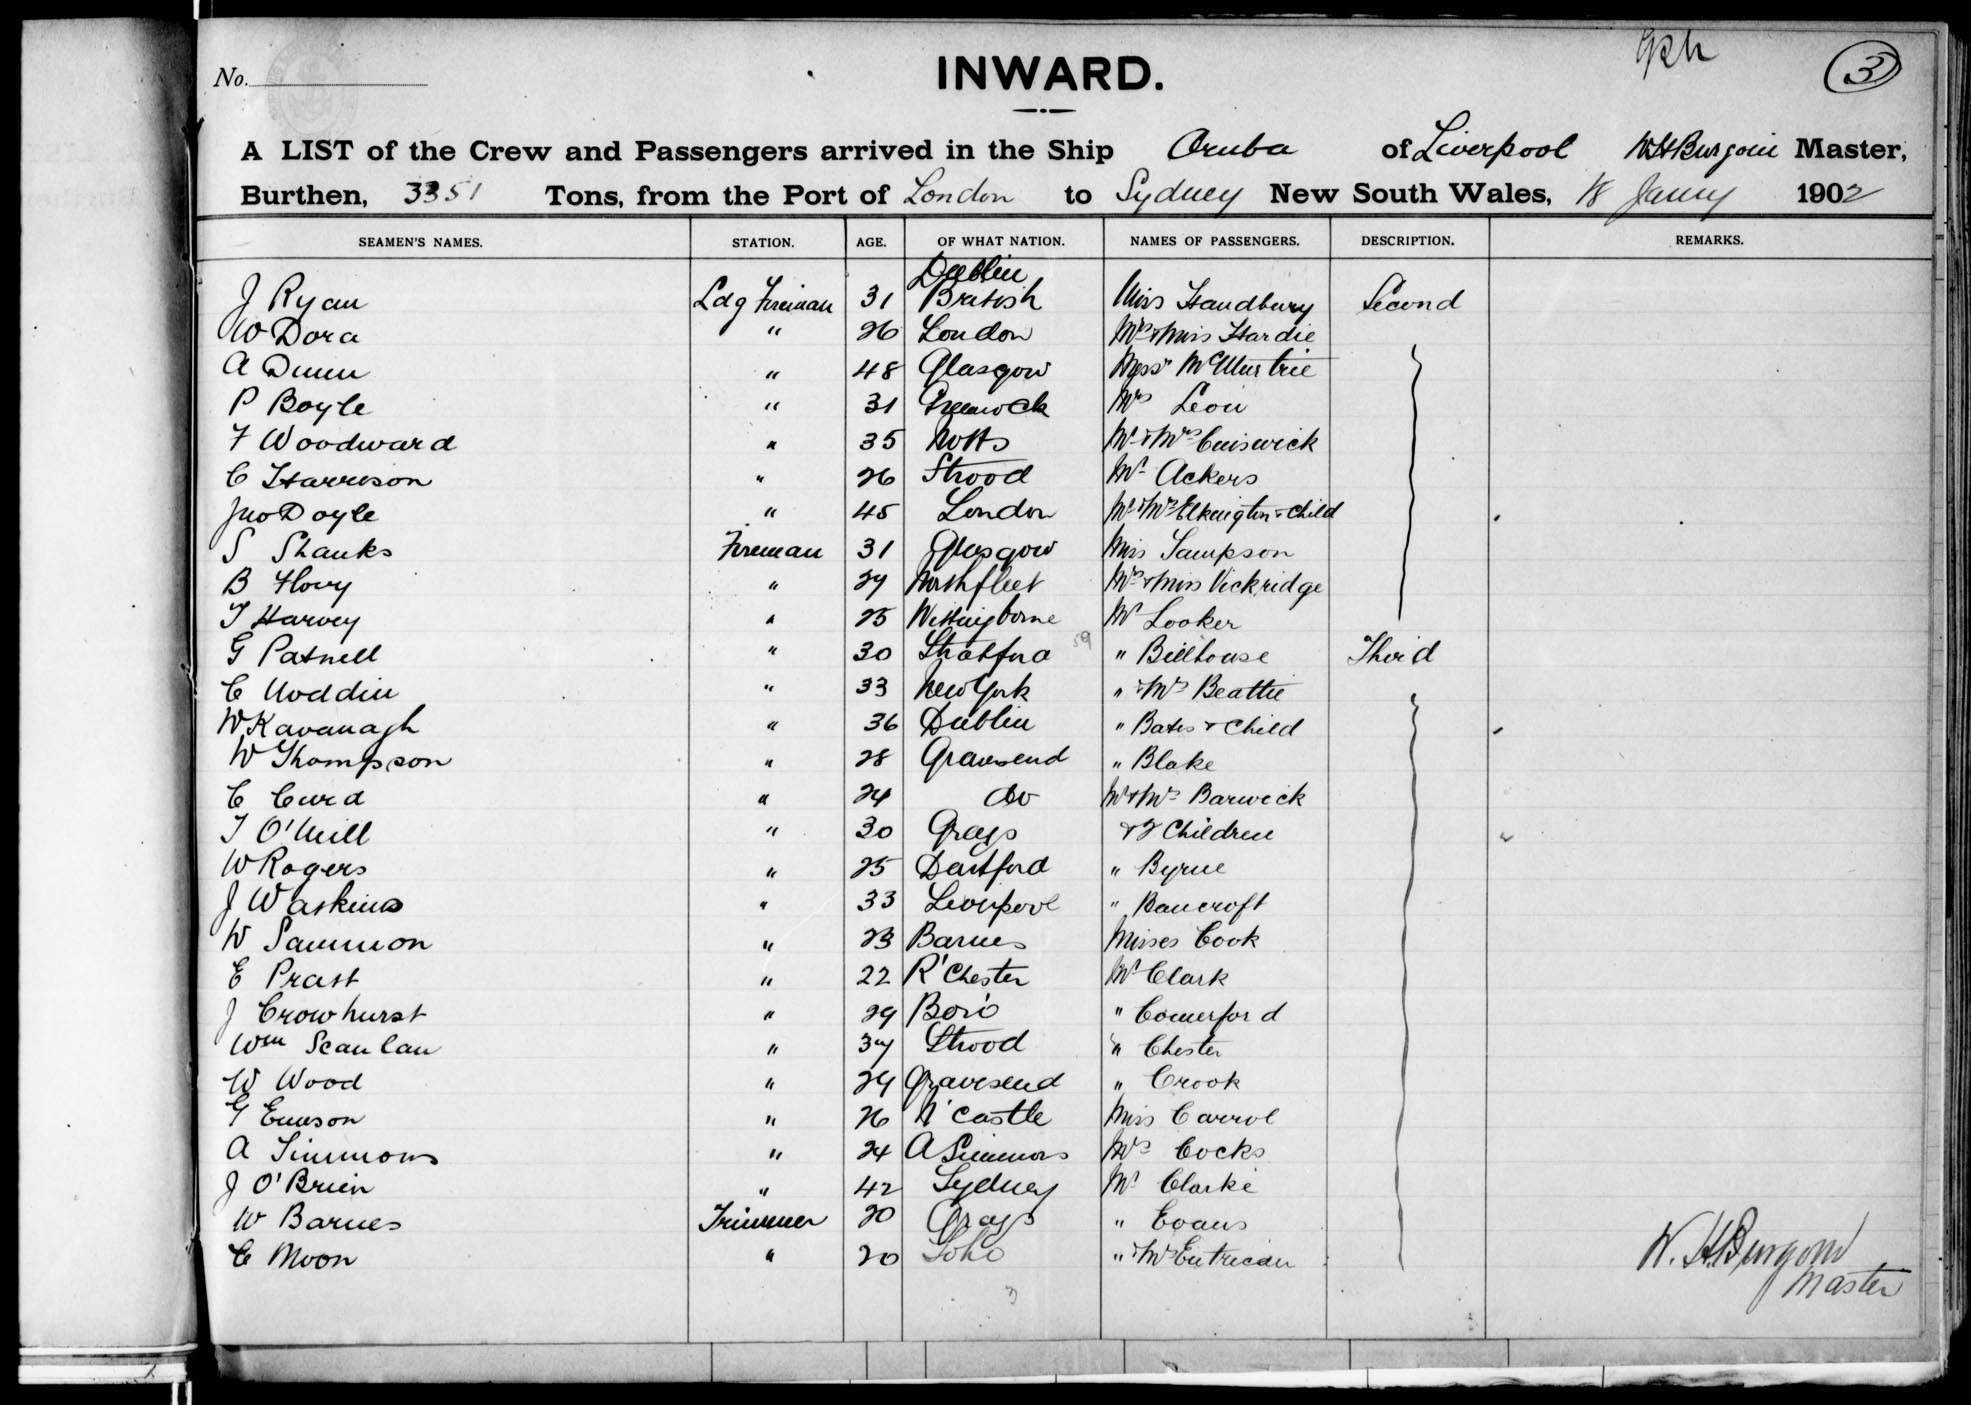 3
No.
INWARD.
A LIST of the Crew and Passengers arrived in the Ship Oruba of Liverpool W H Burgoin Master,
Burthen, 3351 Tons, from the Port of London to Sydney New South Wales, 18 Janry 1902
SEAMEN'S NAMES. STATION. AGE. OF WHAT NATION. NAMES OF PASSENGERS. DESCRIPTION. REMARKS.
Dublin
J Ryan Ldg Fireman 31 British Miss Handbury Second
W Dora " 26 London Mrs & Miss Hardie
A Dunn " 48 Glasgow McMurtrie
P Boyle " 31 Greenock Mrs Leon
F Woodward " 35 Notts Mr & Mrs
C Harrison " 26 Strood Mr Ackers
Jno Doyle " 45 London Mr & Mrs Elkington & Child
S Shanks Fireman 31 Glasgow Miss Sampson
B " 29 Northfleet Mrs & Miss Vickridge
T Harvey " 25 Mr Looker
G Patnell " 30 Stratford " Billhouse Third
C " 33 New York " & Mrs Beattie
W Kavanagh " 36 Dublin " Bates & Child
W Thompson " 28 Gravesend " Blake
C Curd " 24 do Mr & Mrs Barwick
T O'Neill " 30 Grays & 2 Children
W Rogers " 25 Dartford " Byrne
J Waskins " 33 Liverpool " Bancroft
W Sammon " 23 Barnes Misses Cook
E Pratt " 22 R'Chester Mr Clark
J Crowhurst " 29 Boro " Comerford
Wm Scanlan " 37 Strood " Chester
W Wood " 29 Gravesend " Crook
G Emson " 26 N'Castle Miss Carrol
A Simmons " 24 A Simmons Mrs Cocks
J O'Brien " 42 Sydney Mr Clarke
W Barnes Trimmer 20 Grays " Evans
C Moon " 20 Soho " & Mrs Entrican
W. H. Burgoin
Master